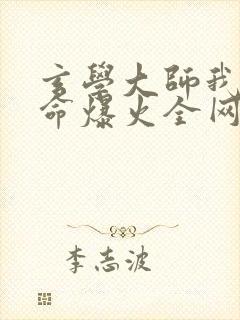 玄學大師我
命爆火全网
李志波